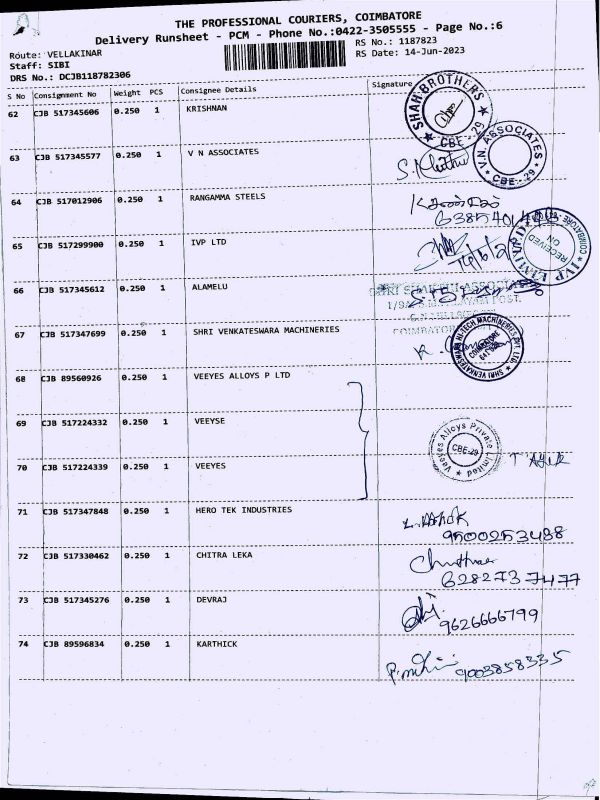 THE PROFESSIONAL COURIERS, COIMBATORE
Delivery Runsheet - PCM - Phone No.:0422-3505555 - Page No.:6
Route: VELLAKINAR
RS No.: 1187823
Staff: SIBI
RS Date: 14-Jun-2023
DRS No.: DCJB118782306
S No Consignment No Weight PCS Consignee Details Signature
62 CJB 517345606 0.250 1 KRISHNAN
SHAH BROTHERS CBE-29
63 CJB 517345577 0.250 1 V N ASSOCIATES
V.N. ASSOCIATES CBE-29
64 CJB 517012906 0.250 1 RANGAMMA STEELS
65 CJB 517299900 0.250 1 IVP LTD
IVP LIMITED COIMBATORE
RECEIVED ON
66 CJB 517345612 0.250 1 ALAMELU
SHRI SHAKTHI ASSOCIATES
67 CJB 517347699 0.250 1 SHRI VENKATESWARA MACHINERIES
COIMBATORE
SHRI VENKATESWARA HI-TECH MACHINERIES PVT. LTD.
COIMBATORE
68 CJB 89560926 0.250 1 VEEYES ALLOYS P LTD
69 CJB 517224332 0.250 1 VEEYSE
Veeyes Alloys Private Limited
CBE-29
70 CJB 517224339 0.250 1 VEEYES
71 CJB 517347848 0.250 1 HERO TEK INDUSTRIES
L. Ashok
9500253488
72 CJB 517330462 0.250 1 CHITRA LEKA
6282737477
73 CJB 517345276 0.250 1 DEVRAJ
9626666799
74 CJB 89596834 0.250 1 KARTHICK
9003858335